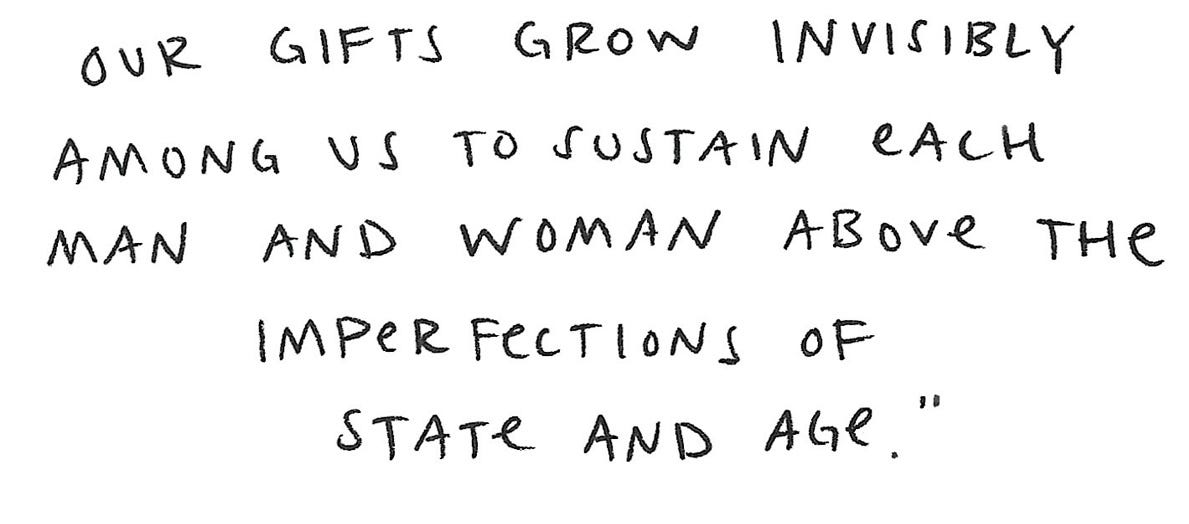 OUR GIFTS GROW INVISIBLY
AMONG US TO SUSTAIN eACH
MAN AND WOMAN ABOve THe
IMPeRFeCTIONS OF
STATe AND AGe."